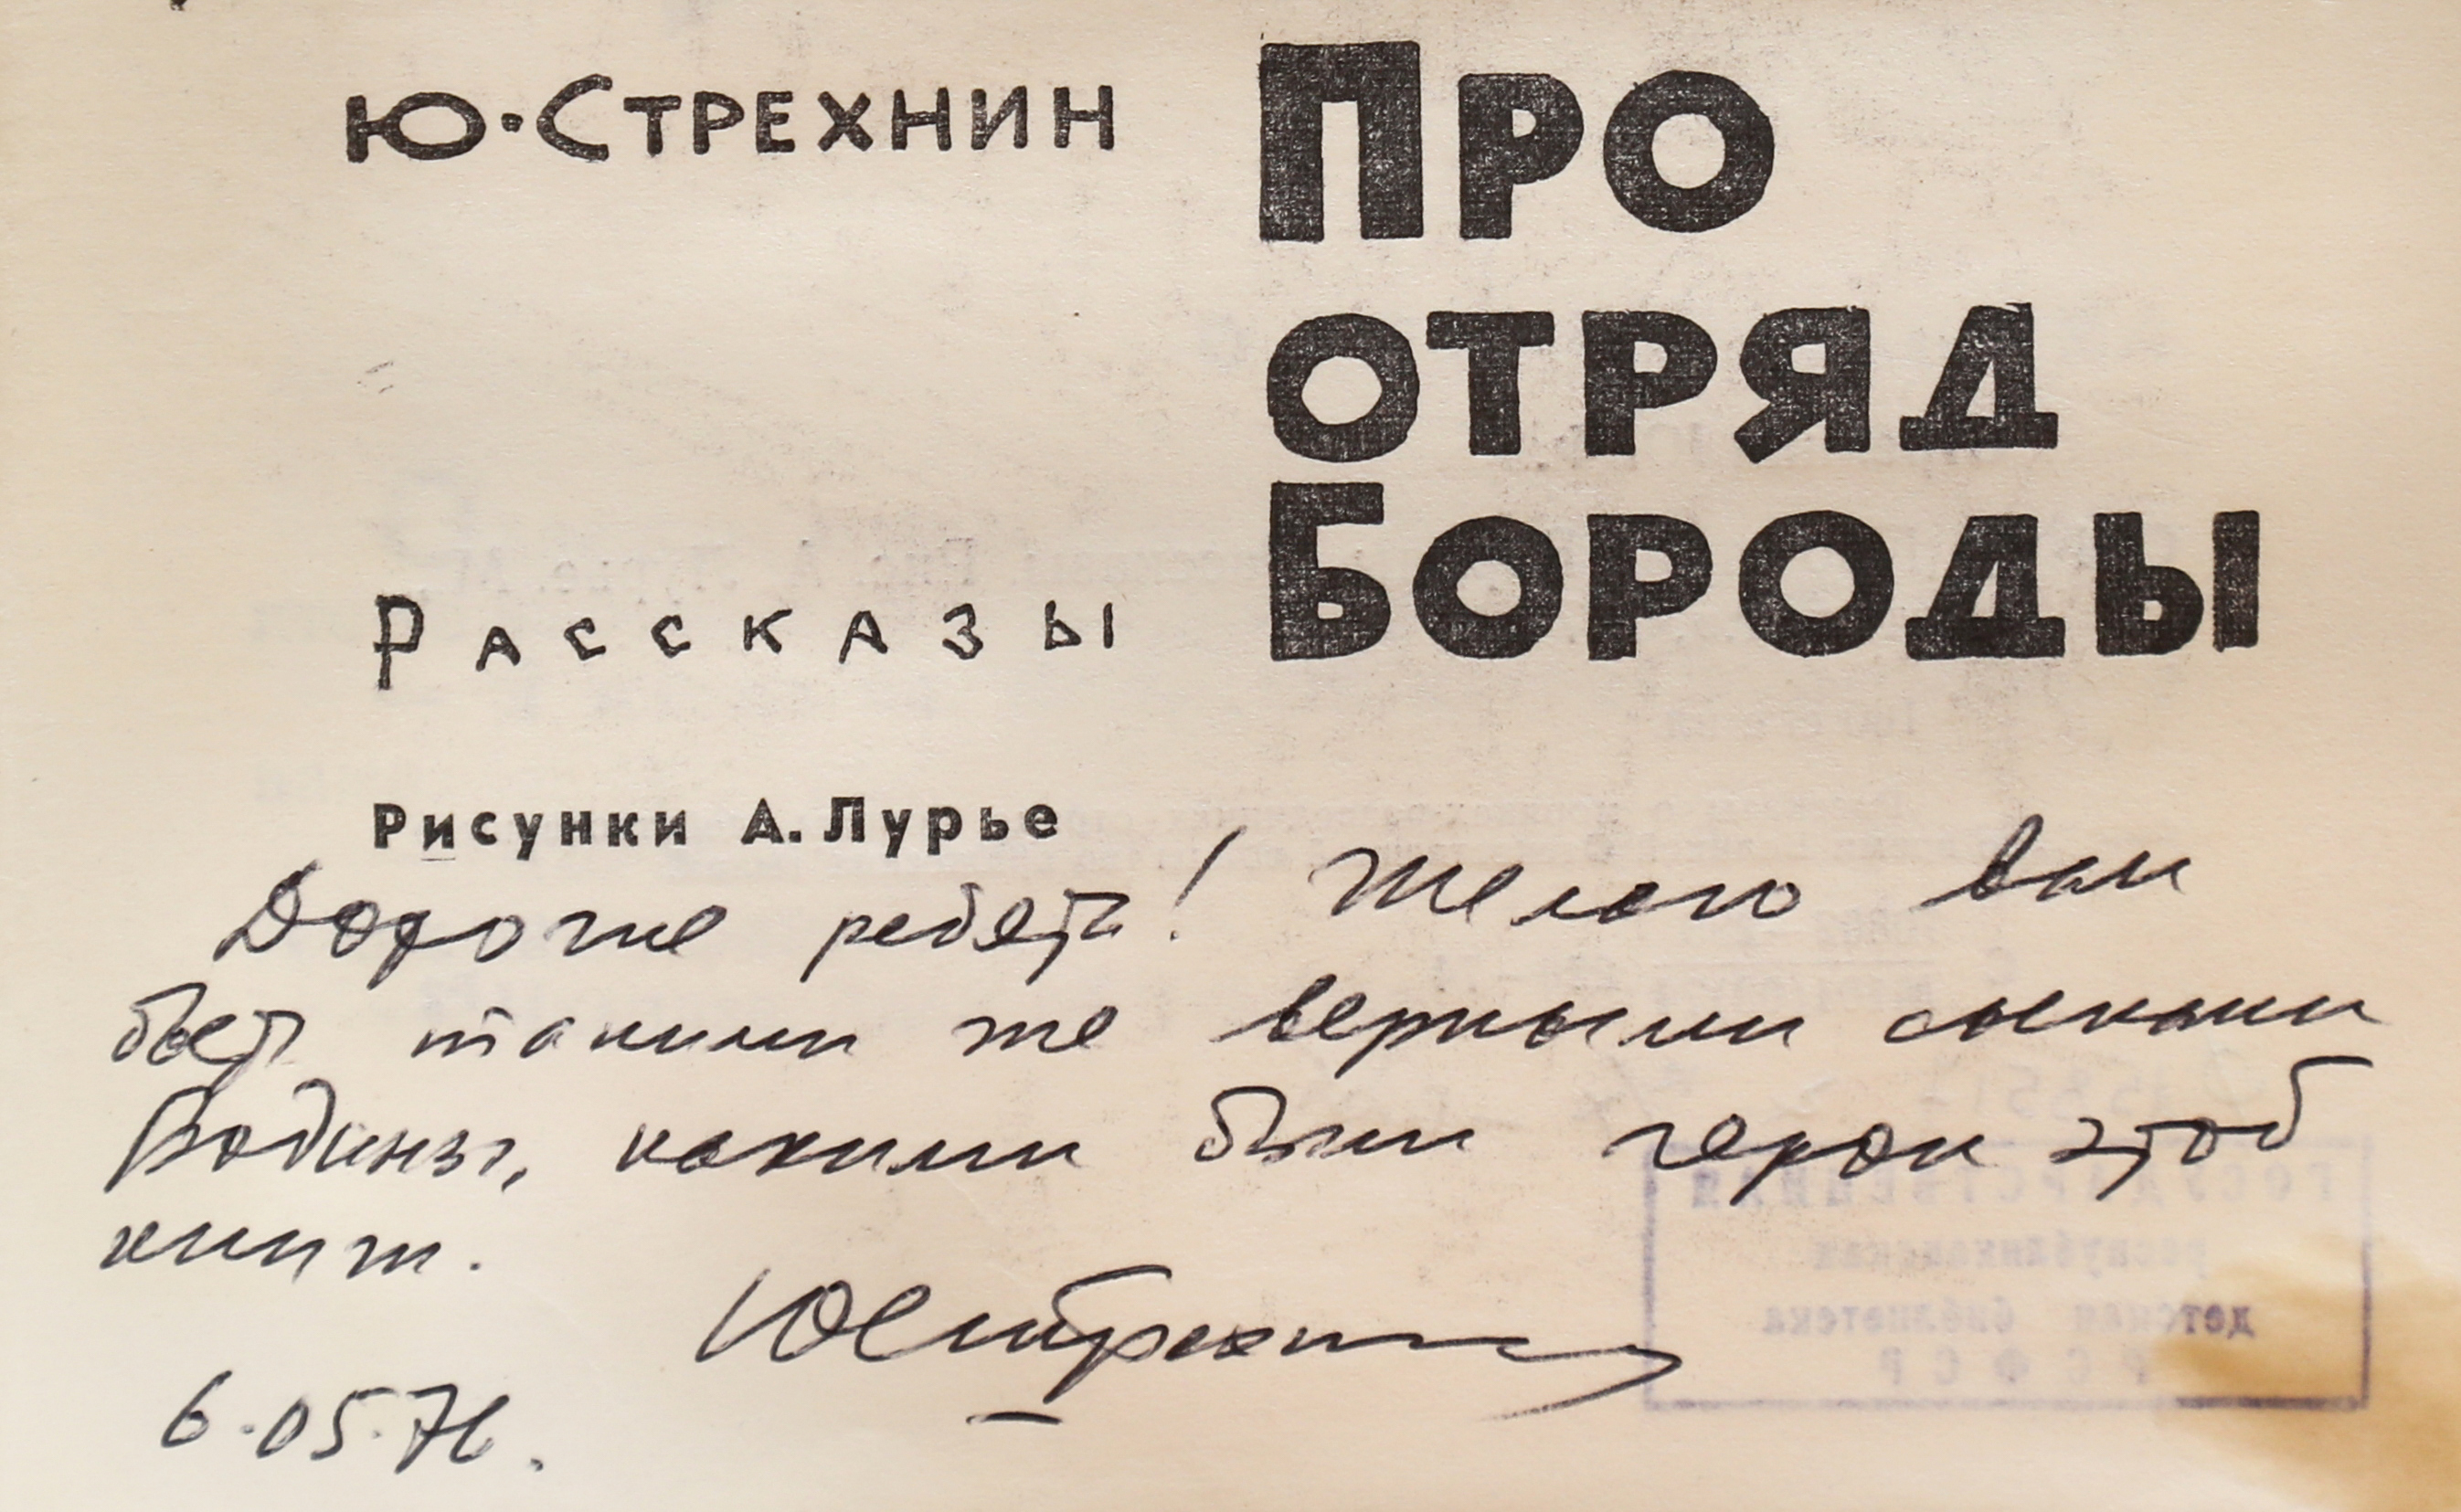 Ю. Стрехнин
Про
отряд
Бороды
Рассказы
Рисунки А. Лурье
Дорогие ребята! Желаю вам
быть такими же верными сынами
Родины, какими были герои этой
книги.
ЮСтрехнин
6.05.76.
ГОСУДАРСТВЕННАЯ
республиканская
детская библиотека
РСФСР